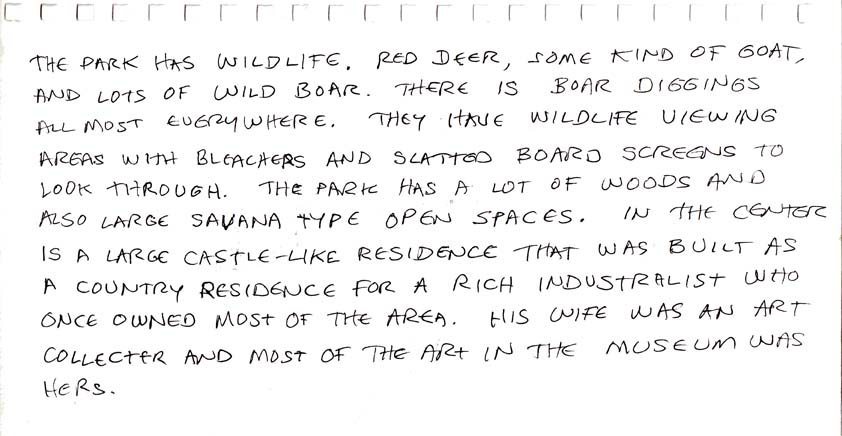 THE PARK HAS WILDLIFE. RED DEER, SOME KIND OF GOAT,
AND LOTS OF WILD BOAR. THERE IS BOAR DIGGINGS
ALL MOST EVERYWHERE. THEY HAVE WILDLIFE VIEWING
AREAS WITH BLEACHERS AND SLATTED BOARD SCREENS TO
LOOK THROUGH. THE PARK HAS A LOT OF WOODS AND
ALSO LARGE SAVANA TYPE OPEN SPACES. IN THE CENTER
IS A LARGE CASTLE-LIKE RESIDENCE THAT WAS BUILT AS
A COUNTRY RESIDENCE FOR A RICH INDUSTRALIST WHO
ONCE OWNED MOST OF THE AREA. HIS WIFE WAS AN ART
COLLECTER AND MOST OF THE ART IN THE MUSEUM WAS
HERS.